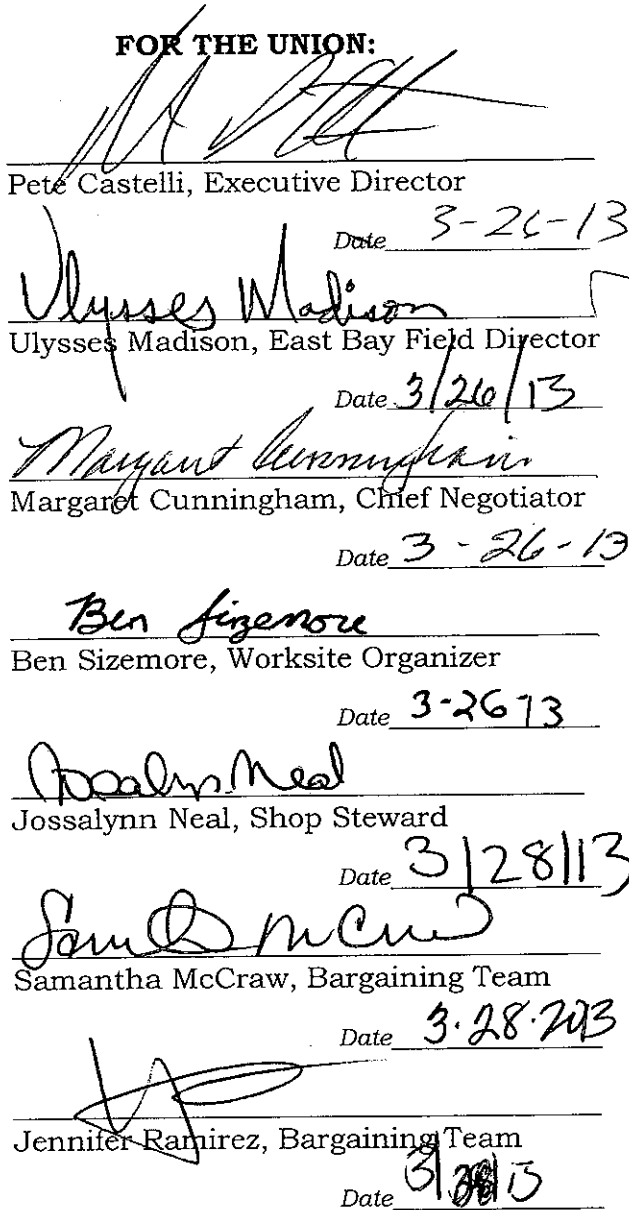 FOR THE UNION:
Pete Castelli, Executive Director
Date 3-26-13
Ulysses Madison
Ulysses Madison, East Bay Field Director
Date 3/26/13
Margaret Cunningham
Margaret Cunningham, Chief Negotiator
Date 3-26-13
Ben Sizemore
Ben Sizemore, Worksite Organizer
Date 3-26-13
Jossalynn Neal
Jossalynn Neal, Shop Steward
Date 3/28/13
Samantha McCraw, Bargaining Team
Date 3.28.2013
Jennifer Ramirez, Bargaining Team
Date